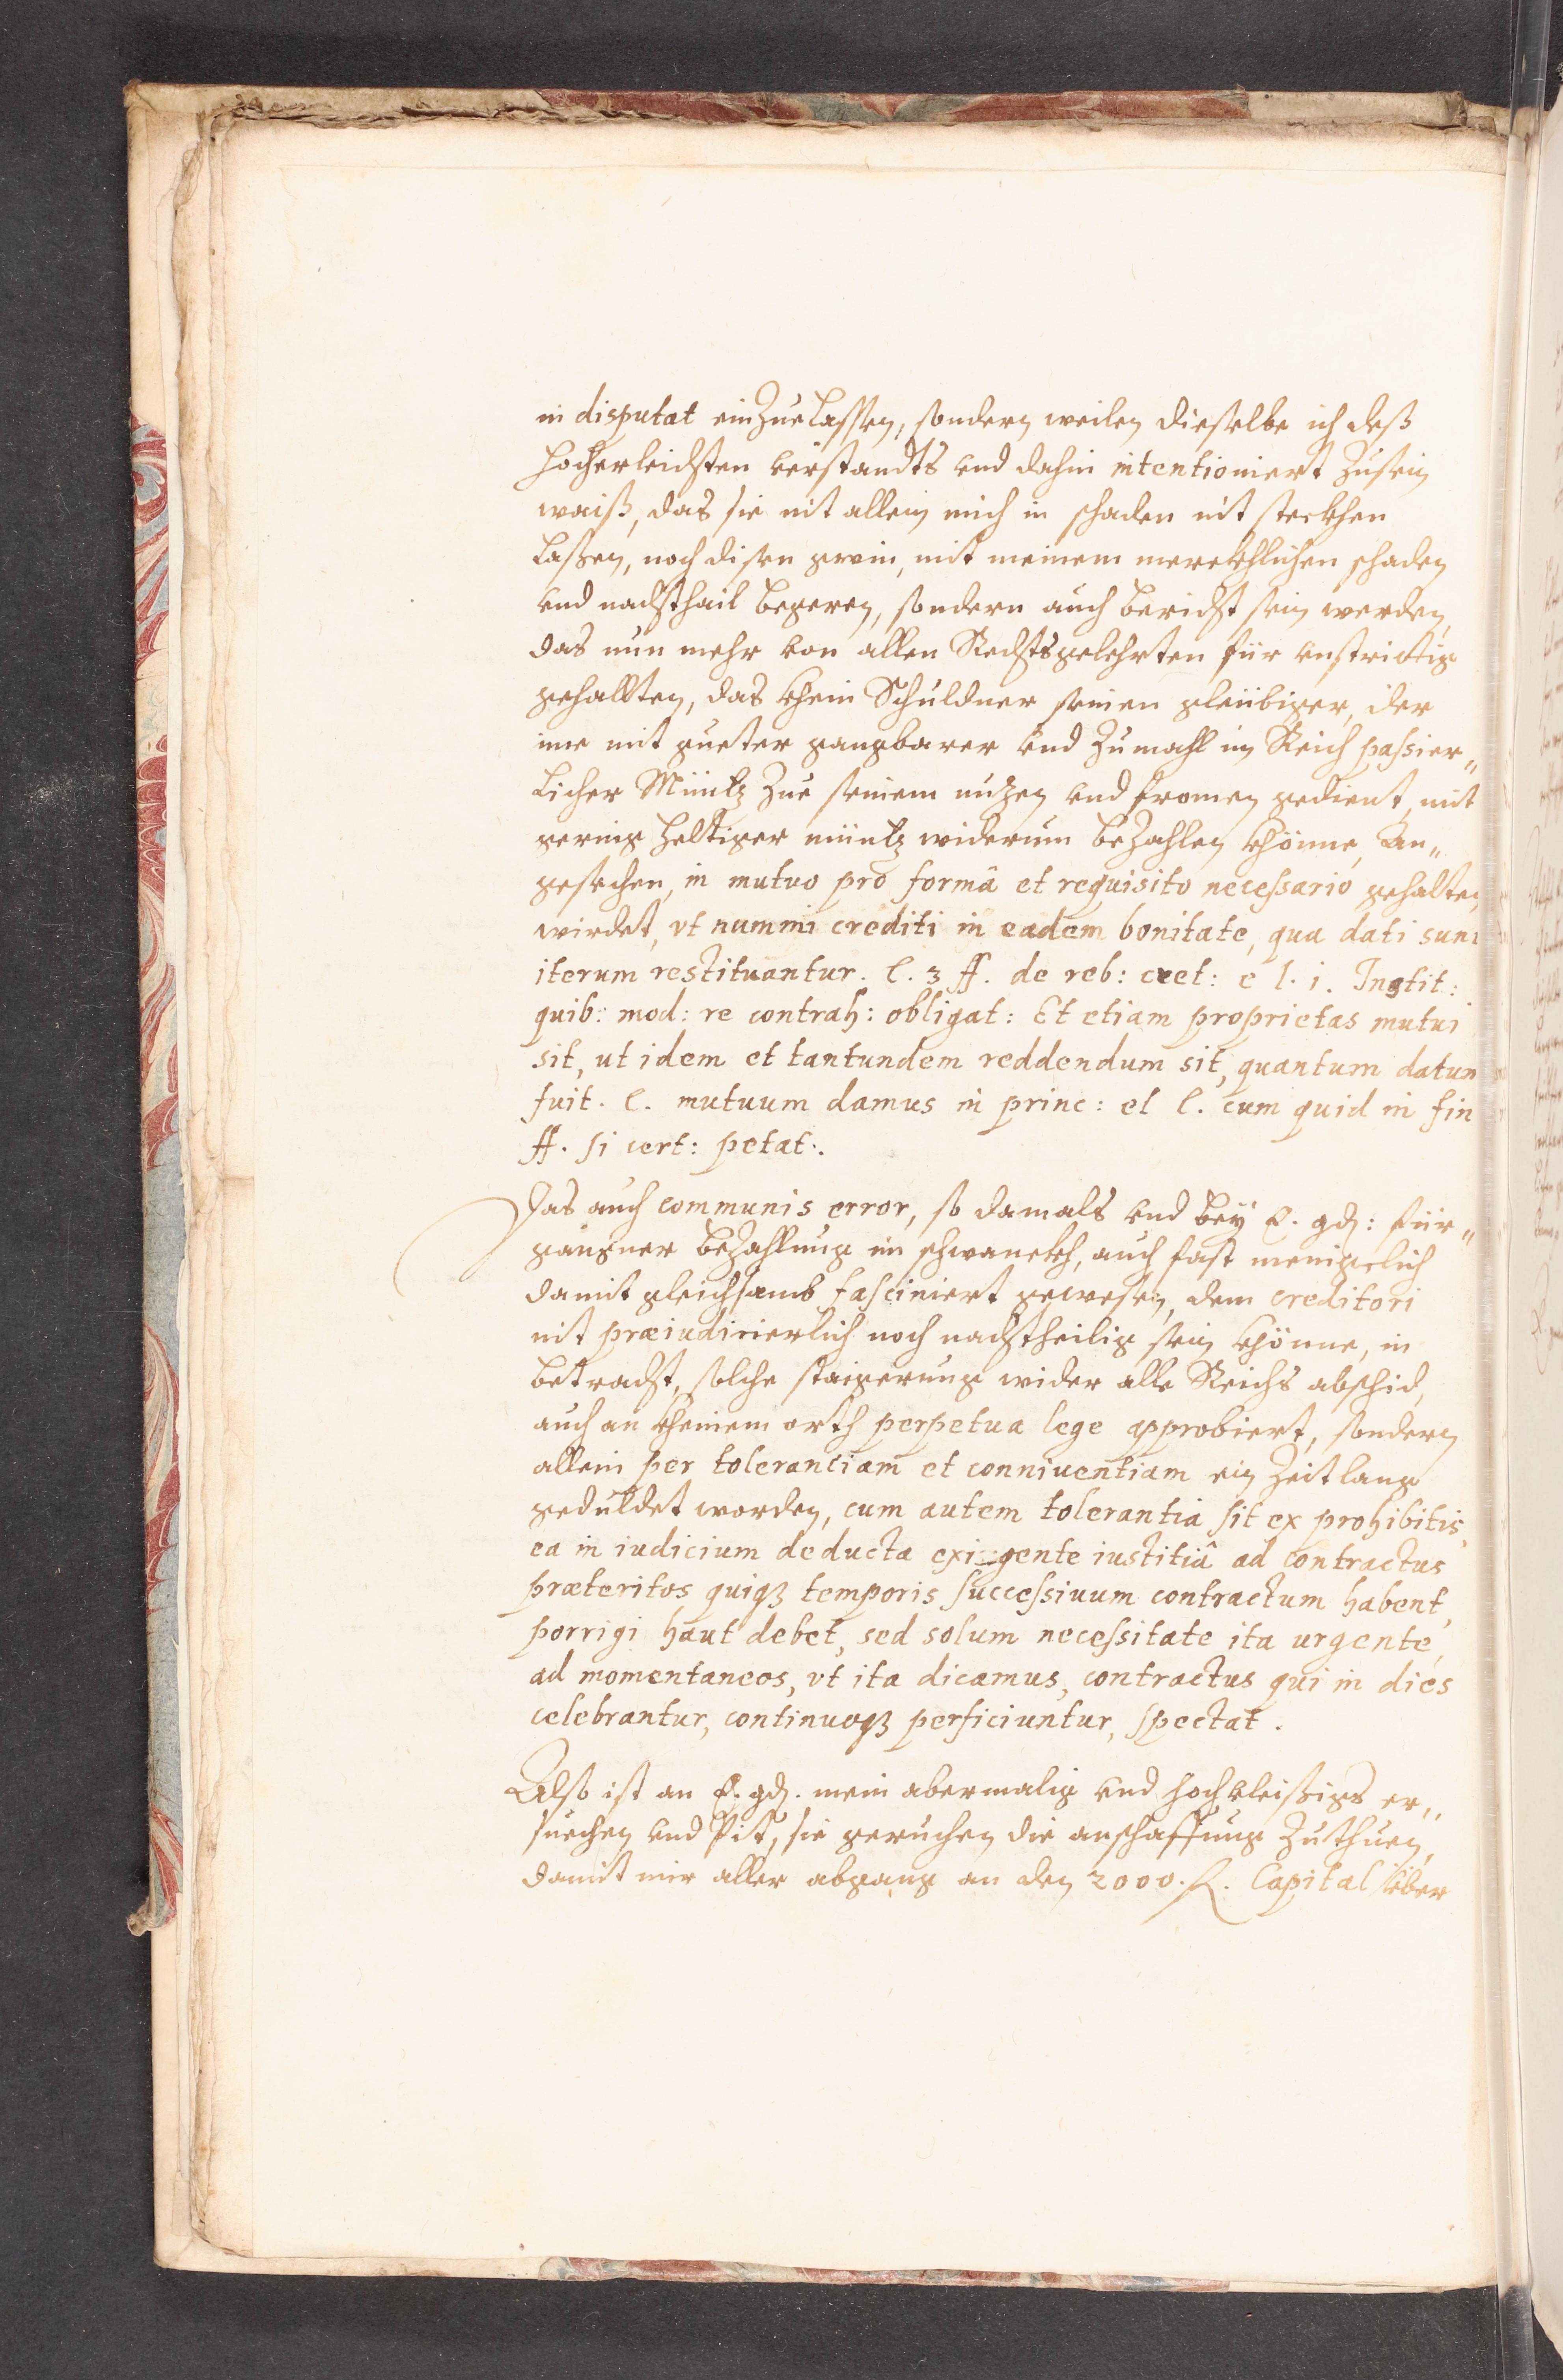 in disputat einZuelassen, sondern weilen dieselbe ich deß
hocherleichten verstandts vnd dahin intentioniert Zusein
waiß, das sie nit allein mich in schaden nit steckhen
Lassen, noch disen gwin, mit meinem merckhlichen schaden
vnd nachthail begeren, sondern auch bericht sein werden,
das nun mehr von allen Rechtsgelehrten für vnstrittig
gehallten, das khein Schuldner seinen gleübiger, der
ime mit gueter gangbarer vnd Zumahl im Reich passier„
licher Müntz Zue seinem nuzen vnd fromen gedient, mit
gering heltiger müntz widerum beZahlen khönne, An„
gesechen, in mutuo pro formâ et requisito necessario gehalten
wirdet, vt nummi crediti in eadem bonitate, qua dati sunt
iterum restituantur. l. 3 ff. de reb: cret: e l. i. Instit:
quib: mod: re contrah: obligat: Et etiam proprietas mutui
sit, ut idem et tantundem reddendum sit, quantum datum
fuit. l. mutuum damus in princ: el l. cum quid in fin
ff. si cert: petat:.
Das auch communis error, so damals vnd bey E. gd: für„
gangner beZahlung im schwanckh, auch fast menigclich
damit gleichsamb fasciniert gewesen, dem creditori
nit præiudicierlich noch nachtheilig sein khönne, in
betracht, solche staigerung wider alle Reichs abschid,
auch an kheinem orth perpetua lege approbiert, sondern
allein per tolerantiam et conniuentiam ein Zeitlang
geduldet worden, cum autem tolerantia sit ex prohibitis,
ea in iudicium deducta exigente iustitiâ ad contractus
præteritos quiqz temporis successiuum contractum habent,
porrigi haut debet, sed solum necessitate ita urgente,
ad momentaneos, vt ita dicamus, contractus qui in dies
celebrantur, continuoqz perficiuntur, spectat.
Also ist an E. gd. mein abermalig vnd hochvleißigs er„
suechen vnd Pit, sie geruchen die anschaffung Zuthuen,
damit mir aller abgang an den 2000. fl. Capital über